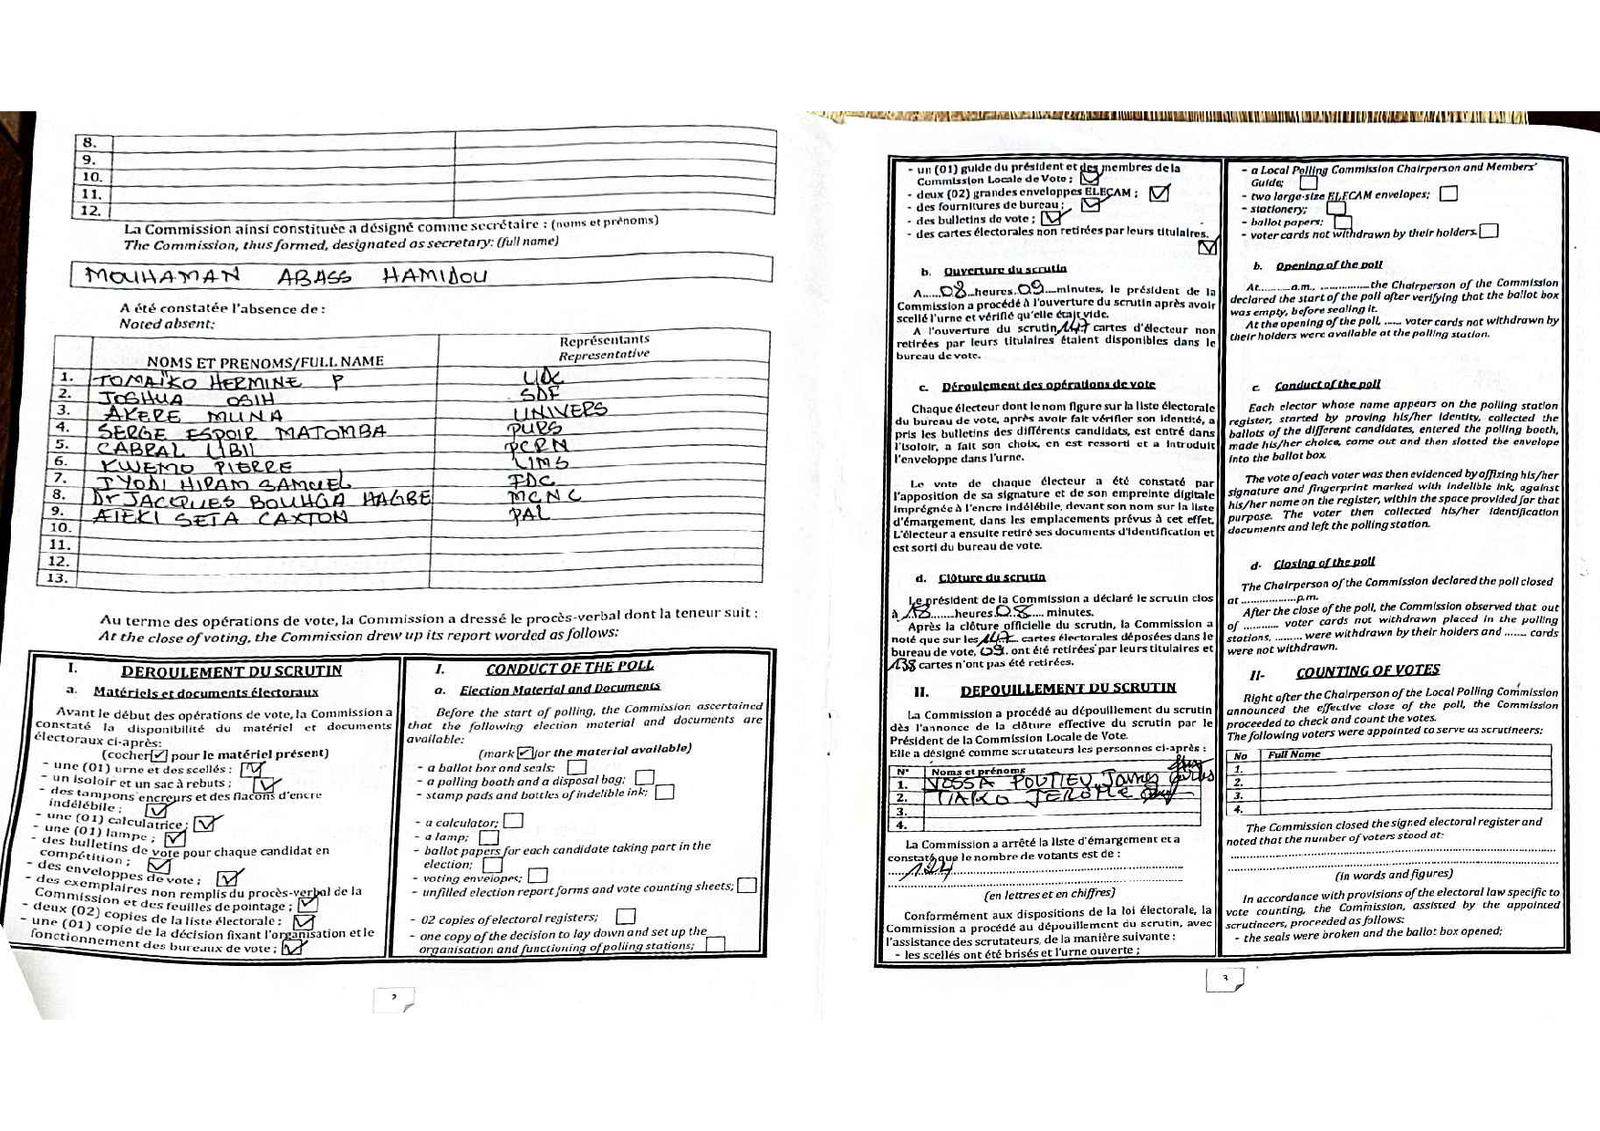 8.
9.
10.
11.
12.
La Commission ainsi constituée a désigné comme secrétaire : (noms et prénoms)
The Commission, thus formed, designated as secretary: (full name)
MOUHAMAN ABASS HAMIDOU
A été constatée l'absence de :
Noted absent:
NOMS ET PRENOMS/FULL NAME
Représentants
Representative
1. TOMAÏKO HERMINE P UDC
2. JOSHUA OSIH SDF
3. AKERE MUNA UNIVERS
4. SERGE ESPOIR MATOMBA PURS
5. CABRAL LIBII PCRN
6. KWEMO PIERRE UMS
7. IYODI HIRAM SAMUEL FDC
8. Dr JACQUES BOUHGA HAGBE MCNC
9. ATEKI SETA CAXTON PAL
10.
11.
12.
13.
Au terme des opérations de vote, la Commission a dressé le procès-verbal dont la teneur suit :
At the close of voting, the Commission drew up its report worded as follows:
I. DEROULEMENT DU SCRUTIN
a. Matériels et documents électoraux
Avant le début des opérations de vote, la Commission a
constaté la disponibilité du matériel et documents
électoraux ci-après:
(cocher ☑ pour le matériel présent)
- une (01) urne et des scellés : ☑
- un isoloir et un sac à rebuts ; ☑
- des tampons encreurs et des flacons d'encre
indélébile ; ☑
- une (01) calculatrice ; ☑
- une (01) lampe ; ☑
- des bulletins de vote pour chaque candidat en
compétition ; ☑
- des enveloppes de vote ; ☑
- des exemplaires non remplis du procès-verbal de la
Commission et des feuilles de pointage ; ☑
- deux (02) copies de la liste électorale : ☑
- une (01) copie de la décision fixant l'organisation et le
fonctionnement des bureaux de vote ; ☑
I. CONDUCT OF THE POLL
a. Election Material and Documents
Before the start of polling, the Commission ascertained
that the following election material and documents are
available:
(mark ☑ for the material available)
- a ballot box and seals: ☐
- a polling booth and a disposal bag; ☐
- stamp pads and bottles of indelible ink; ☐
- a calculator; ☐
- a lamp; ☐
- ballot papers for each candidate taking part in the
election; ☐
- voting envelopes; ☐
- unfilled election report forms and vote counting sheets; ☐
- 02 copies of electoral registers; ☐
- one copy of the decision to lay down and set up the
organisation and functioning of polling stations; ☐
2
- un (01) guide du président et des membres de la
Commission Locale de Vote ; ☑
- deux (02) grandes enveloppes ELECAM ; ☑
- des fournitures de bureau ; ☑
- des bulletins de vote ; ☑
- des cartes électorales non retirées par leurs titulaires. ☑
b. Ouverture du scrutin
A.....08..heures.09....minutes, le président de la
Commission a procédé à l'ouverture du scrutin après avoir
scellé l'urne et vérifié qu'elle était vide.
A l'ouverture du scrutin, 147 cartes d'électeur non
retirées par leurs titulaires étaient disponibles dans le
bureau de vote.
c. Déroulement des opérations de vote
Chaque électeur dont le nom figure sur la liste électorale
du bureau de vote, après avoir fait vérifier son identité, a
pris les bulletins des différents candidats, est entré dans
l'isoloir, a fait son choix, en est ressorti et a introduit
l'enveloppe dans l'urne.
Le vote de chaque électeur a été constaté par
l'apposition de sa signature et de son empreinte digitale
imprégnée à l'encre indélébile, devant son nom sur la liste
d'émargement, dans les emplacements prévus à cet effet.
L'électeur a ensuite retiré ses documents d'identification et
est sorti du bureau de vote.
d. Clôture du scrutin
Le président de la Commission a déclaré le scrutin clos
à 18........heures 08.... minutes.
Après la clôture officielle du scrutin, la Commission a
noté que sur les 147 cartes électorales déposées dans le
bureau de vote, 09. ont été retirées par leurs titulaires et
138 cartes n'ont pas été retirées.
II. DEPOUILLEMENT DU SCRUTIN
La Commission a procédé au dépouillement du scrutin
dès l'annonce de la clôture effective du scrutin par le
Président de la Commission Locale de Vote.
Elle a désigné comme scrutateurs les personnes ci-après :
N° Noms et prénoms
1. POUTIEU James
2. TIAKO JEROME
3.
4.
La Commission a arrêté la liste d'émargement et a
constaté que le nombre de votants est de :
124
(en lettres et en chiffres)
Conformément aux dispositions de la loi électorale, la
Commission a procédé au dépouillement du scrutin, avec
l'assistance des scrutateurs, de la manière suivante :
- les scellés ont été brisés et l'urne ouverte ;
- a Local Polling Commission Chairperson and Members'
Guide; ☐
- two large-size ELECAM envelopes; ☐
- stationery; ☐
- ballot papers; ☐
- voter cards not withdrawn by their holders. ☐
b. Opening of the poll
At..........a.m., ...............the Chairperson of the Commission
declared the start of the poll after verifying that the ballot box
was empty, before sealing it.
At the opening of the poll, ...... voter cards not withdrawn by
their holders were available at the polling station.
c. Conduct of the poll
Each elector whose name appears on the polling station
register, started by proving his/her identity, collected the
ballots of the different candidates, entered the polling booth,
made his/her choice, came out and then slotted the envelope
into the ballot box.
The vote of each voter was then evidenced by affixing his/her
signature and fingerprint marked with indelible ink, against
his/her name on the register, within the space provided for that
purpose. The voter then collected his/her identification
documents and left the polling station.
d- Closing of the poll
The Chairperson of the Commission declared the poll closed
at ................p.m.
After the close of the poll, the Commission observed that out
of .......... voter cards not withdrawn placed in the polling
stations, ........ were withdrawn by their holders and ....... cards
were not withdrawn.
II- COUNTING OF VOTES
Right after the Chairperson of the Local Polling Commission
announced the effective close of the poll, the Commission
proceeded to check and count the votes.
The following voters were appointed to serve as scrutineers:
No Full Name
1.
2.
3.
4.
The Commission closed the signed electoral register and
noted that the number of voters stood at:
(in words and figures)
In accordance with provisions of the electoral law specific to
vote counting, the Commission, assisted by the appointed
scrutineers, proceeded as follows:
- the seals were broken and the ballot box opened;
3